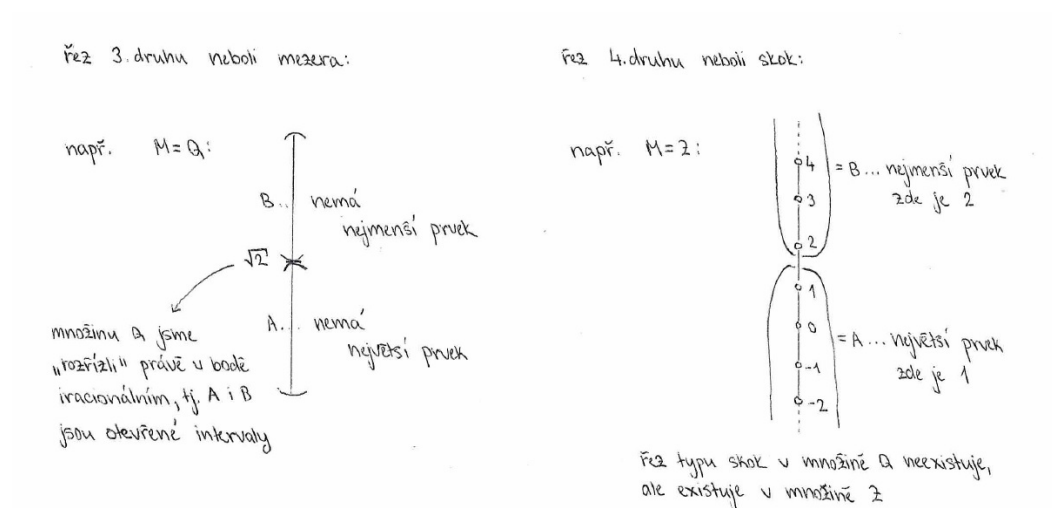 řez 3. druhu neboli mezera:
např. M = Q:
B... nemá
nejmenší prvek
√2
A... nemá
největsí prvek
množinu Q jsme
„rozřízli" právě v bodě
iracionálním, tj. A i B
jsou otevřené intervaly
řez 4. druhu neboli skok:
např. M = Z:
4
= B... nejmenší prvek
3
zde je 2
2
1
0
= A... největší prvek
-1
zde je 1
-2
řez typu skok v množině Q neexistuje,
ale existuje v množině Z